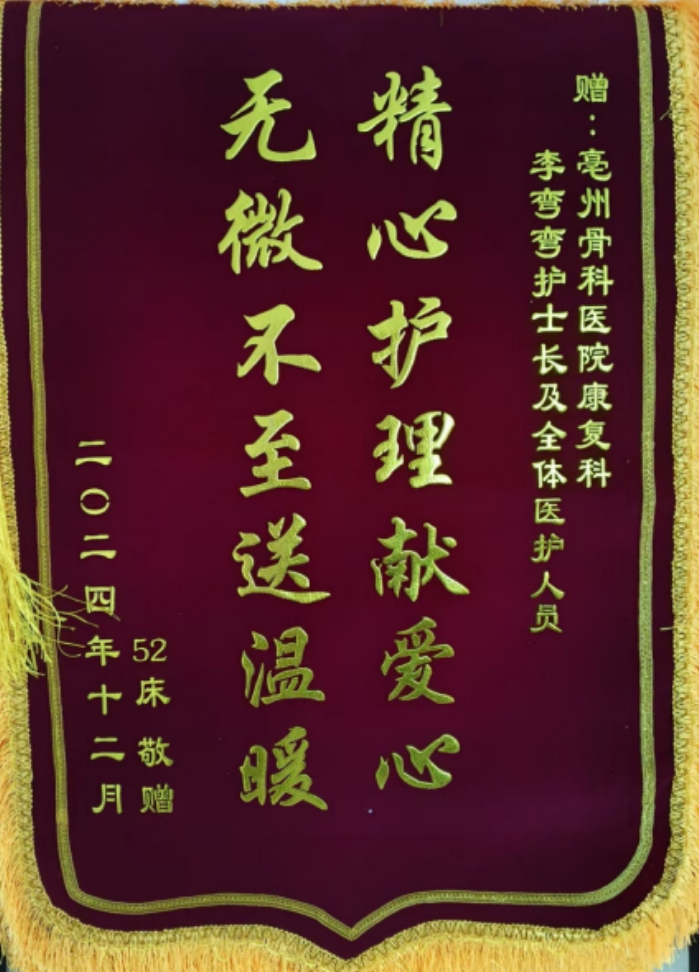 赠：亳州骨科医院康复科
李弯弯护士长及全体医护人员
精心护理献爱心
无微不至送温暖
52床 敬赠
二〇二四年十二月